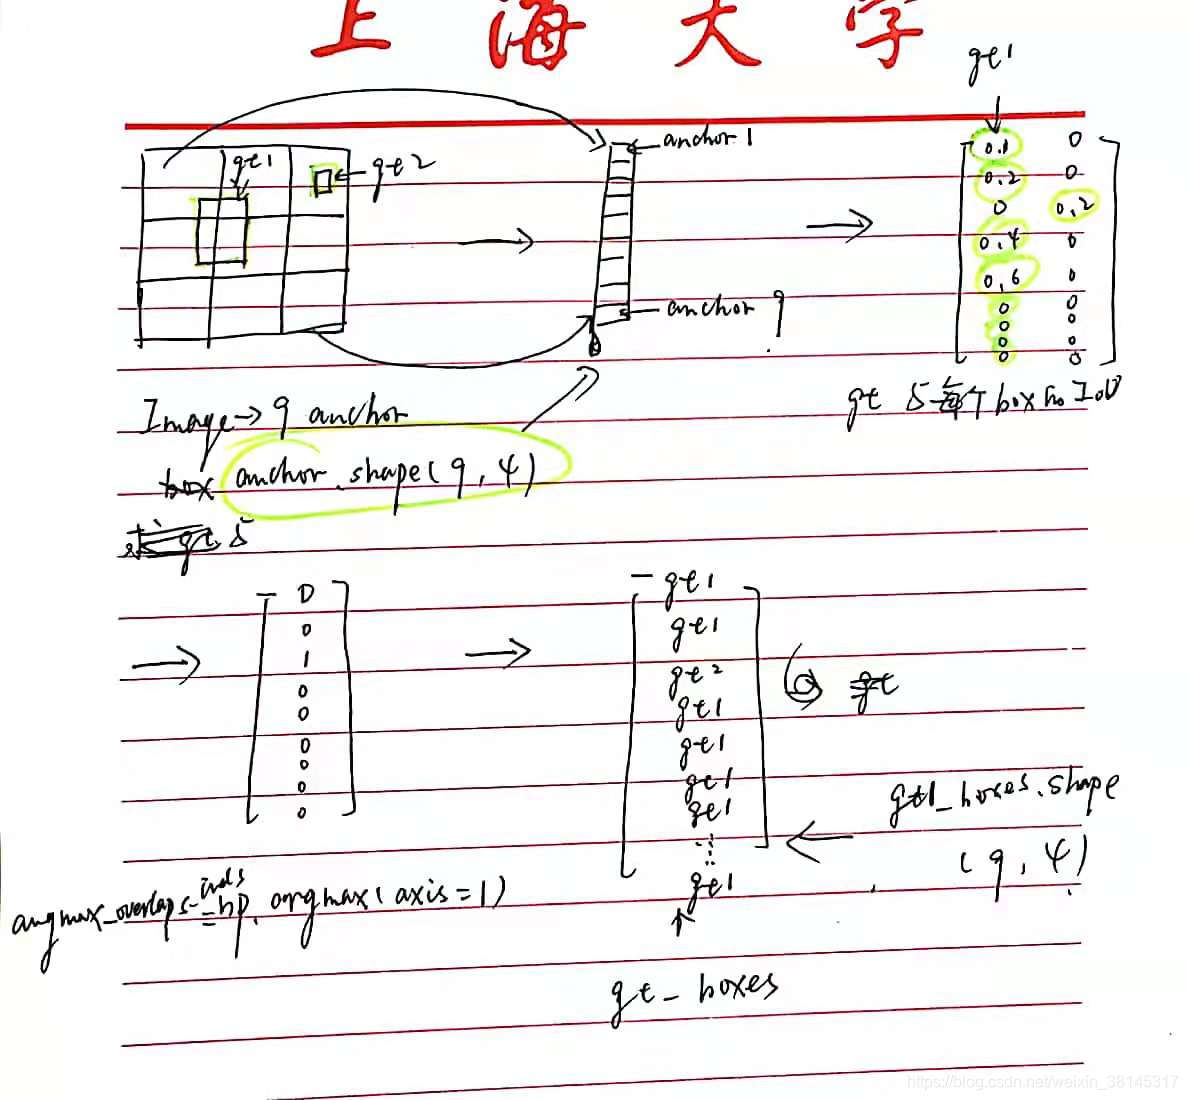 上海大学
gt1
gt1
gt2
anchor 1
anchor 9
0.1 0
0.2 0
0 0.2
0.4 0
0.6 0
0 0
0 0
0 0
0 0
gt 与每个box的IoU
Image→9 anchor
box anchor.shape(9,4)
gt 与
0
0
1
0
0
0
0
0
0
gt1
gt1
gt2
gt1
gt1
gt1
gt1
⋮
gt1
gt
gt1_boxes.shape
(9,4)
argmax_overlaps_inds
=np.argmax(axis=1)
gt_boxes
https://blog.csdn.net/weixin_38145317